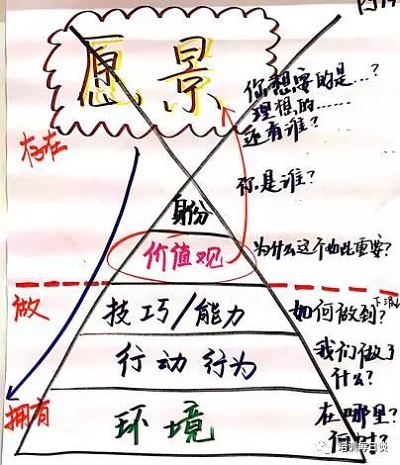 愿景
你想要的是...?
理想的......
还有谁?
存在
你是谁?
身份
价值观
为什么这个如此重要?
做
技巧/能力
如何做到?
行动行为
我们做了
什么?
拥有
环境
在哪里?
何时?